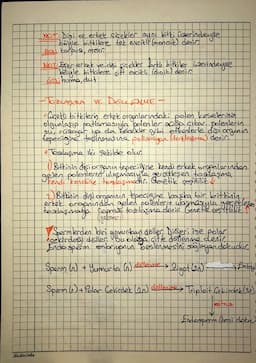 NOT Dişi ve erkek çiçekler aynı bitki üzerindeyse
böyle bitkilere tek evcikli (monoik) denir.
mısır.
NOT Eğer erkek ve dişi çiçekler farklı bitkiler üzerindeyse
böyle bitkilere çift evcikli (dioik) denir.
hurma, dut
-TOZLAŞMA VE DÖLLENME-
Çiçekli bitkilerin erkek organlarındaki polen keselerinin
olgunlaşıp patlamasıyla polenler açığa çıkar. polenlerin
su, rüzgar ya da böcekler gibi etkenlerle dişi organın
tepeciğine taşınmasına (tozlaşma) denir.
Tozlaşma iki şekilde olur.
1) Bitkinin dişi organın tepeciğine kendi erkek organlarından
gelen polenlerin ulaşmasıyla gerçekleşen tozlaşma,
kendi kendine tozlaşmadır. Genetik çeşitlilik ↓
2) Bitkinin dişi organın tepeciğine başka bir bitkinin
erkek organından gelen polenlerin ulaşmasıyla gerçekleşen
tozlaşmaya tozlaşma denir. Genetik çeşitlilik ↑
Spermlerden biri yumurtayı döller, diğeri ise polar
çekirdeği döller. Bu olaya çifte döllenme denir.
Endosperm embriyonun beslenmesini sağlayan dokudur.
Sperm (n) + Yumurta (n) döllenme → Zigot (2n) → Embriyo
Sperm (n) + Polar Çekirdek (2n) döllenme → Triploit Çekirdek (3n)
mitoz
Endosperm (besi doku)